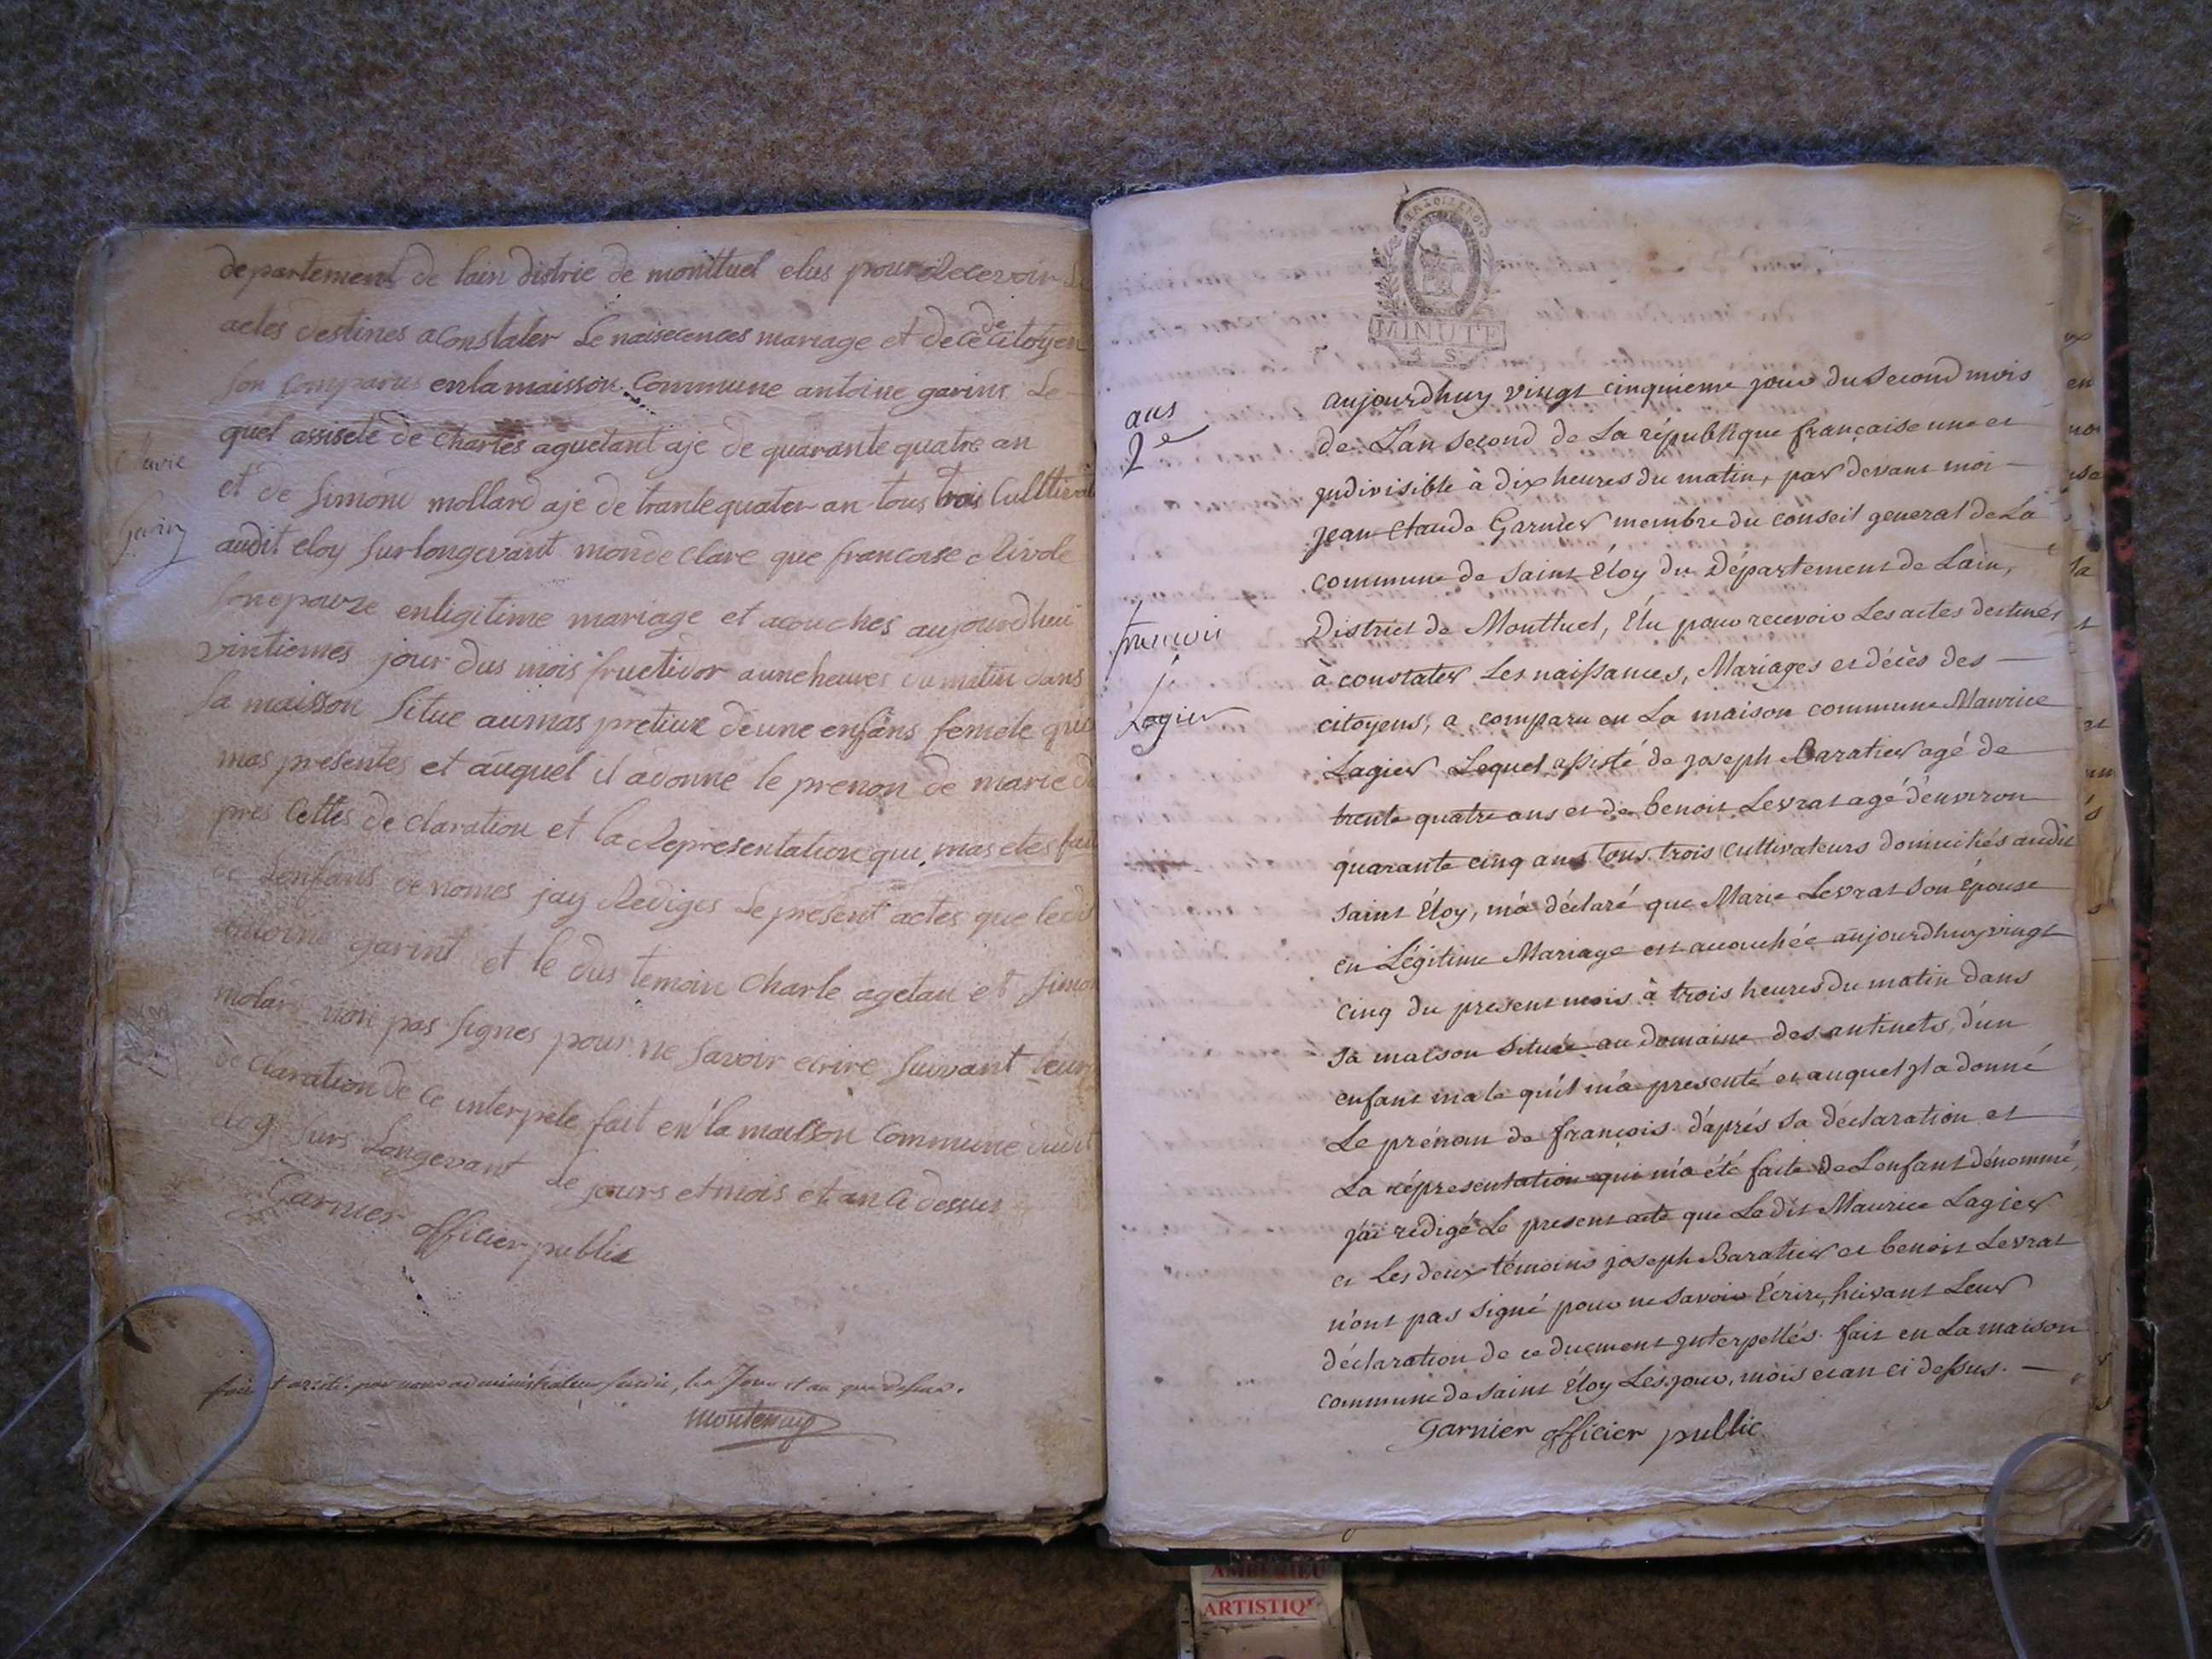 departement de lain distric de montluel elus pour Recevoir Le
actes destines aconstater Le naisecences mariage et dece de citoyen
son comparus enlamaisson Commune antoine garins Le
quel assisete de charles aguetant aje de quarante quatre an
et de simone mollard aje de trante quater an tous trois Culltivat
audit eloy surlongevant monde clare que francoise Rivole
son epouze enligitime mariage et acouches aujourdhui
vintiemes jour dus mois fructidor aune heures du matin dans
sa maisson situe aumas pretieux deune enfans femele qui
mas presentes et auquel il adonne le prenon de marie da
pres Cettes declaration et la Representation qui mas etes fait
de Lenfans denomes jay Rediges Le present actes que ledit
antoine garint et le dus temoin Charle agetan et simon
molard non pas signes pour ne savoir ecrire suivant leur
declaration de ce interpele fait en la maisson Commune dudit
eloy surs Longevant le jours et mois et an ci dessus
Garnier officier public
marie
garin
fait et arrêté par nous administrateur susdit, les Jour et an que dessus.
montenay
MINUTE
4. S.
acts
2e
françois
Lagier
aujourdhuy vingt cinquieme jour du Second mois
de Lan Second de La républíque française une et
jndivisible à dix heures du matin, par devant moi
jean Claude Garnier membre du conseil general de La
commune de Saint Éloy du Département de Lain,
District de Montluel, Élu pour recevoir Les actes destinés
à constater Les naissances, Mariages et décès des
citoyens, a comparu en La maison commune Maurice
Lagier Lequel assisté de joseph Baratier agé de
trente quatre ans et de benoit Levrat agé d'environ
quarante cinq ans tous trois cultivateurs domiciliés audit
Saint Éloy, m'a déclaré que Marie Levrat Son épouse
en Légitime Mariage est accouchée aujourdhuy vingt
cinq du present mois à trois heures du matin dans
Sa maison Située au Domaine des antinets, d'un
enfant male qu'il m'a presenté et auquel jl a donné
Le prénom de françois. d'aprés Sa déclaration et
La répresentation qui m'a été faite de L'enfant dénommé,
j'ai rédigé Le present acte que Le dit Maurice Lagier
et Les deux témoins joseph Baratier et benoit Levrat
n'ont pas Signé pour ne Savoir Écrire, Suivant Leur
déclaration de ce duement jnterpellés. fait en La maison
commune de Saint Éloy Les jour, mois et an ci dessus.
Garnier officier public
AMBERIEU
ARTISTIQ